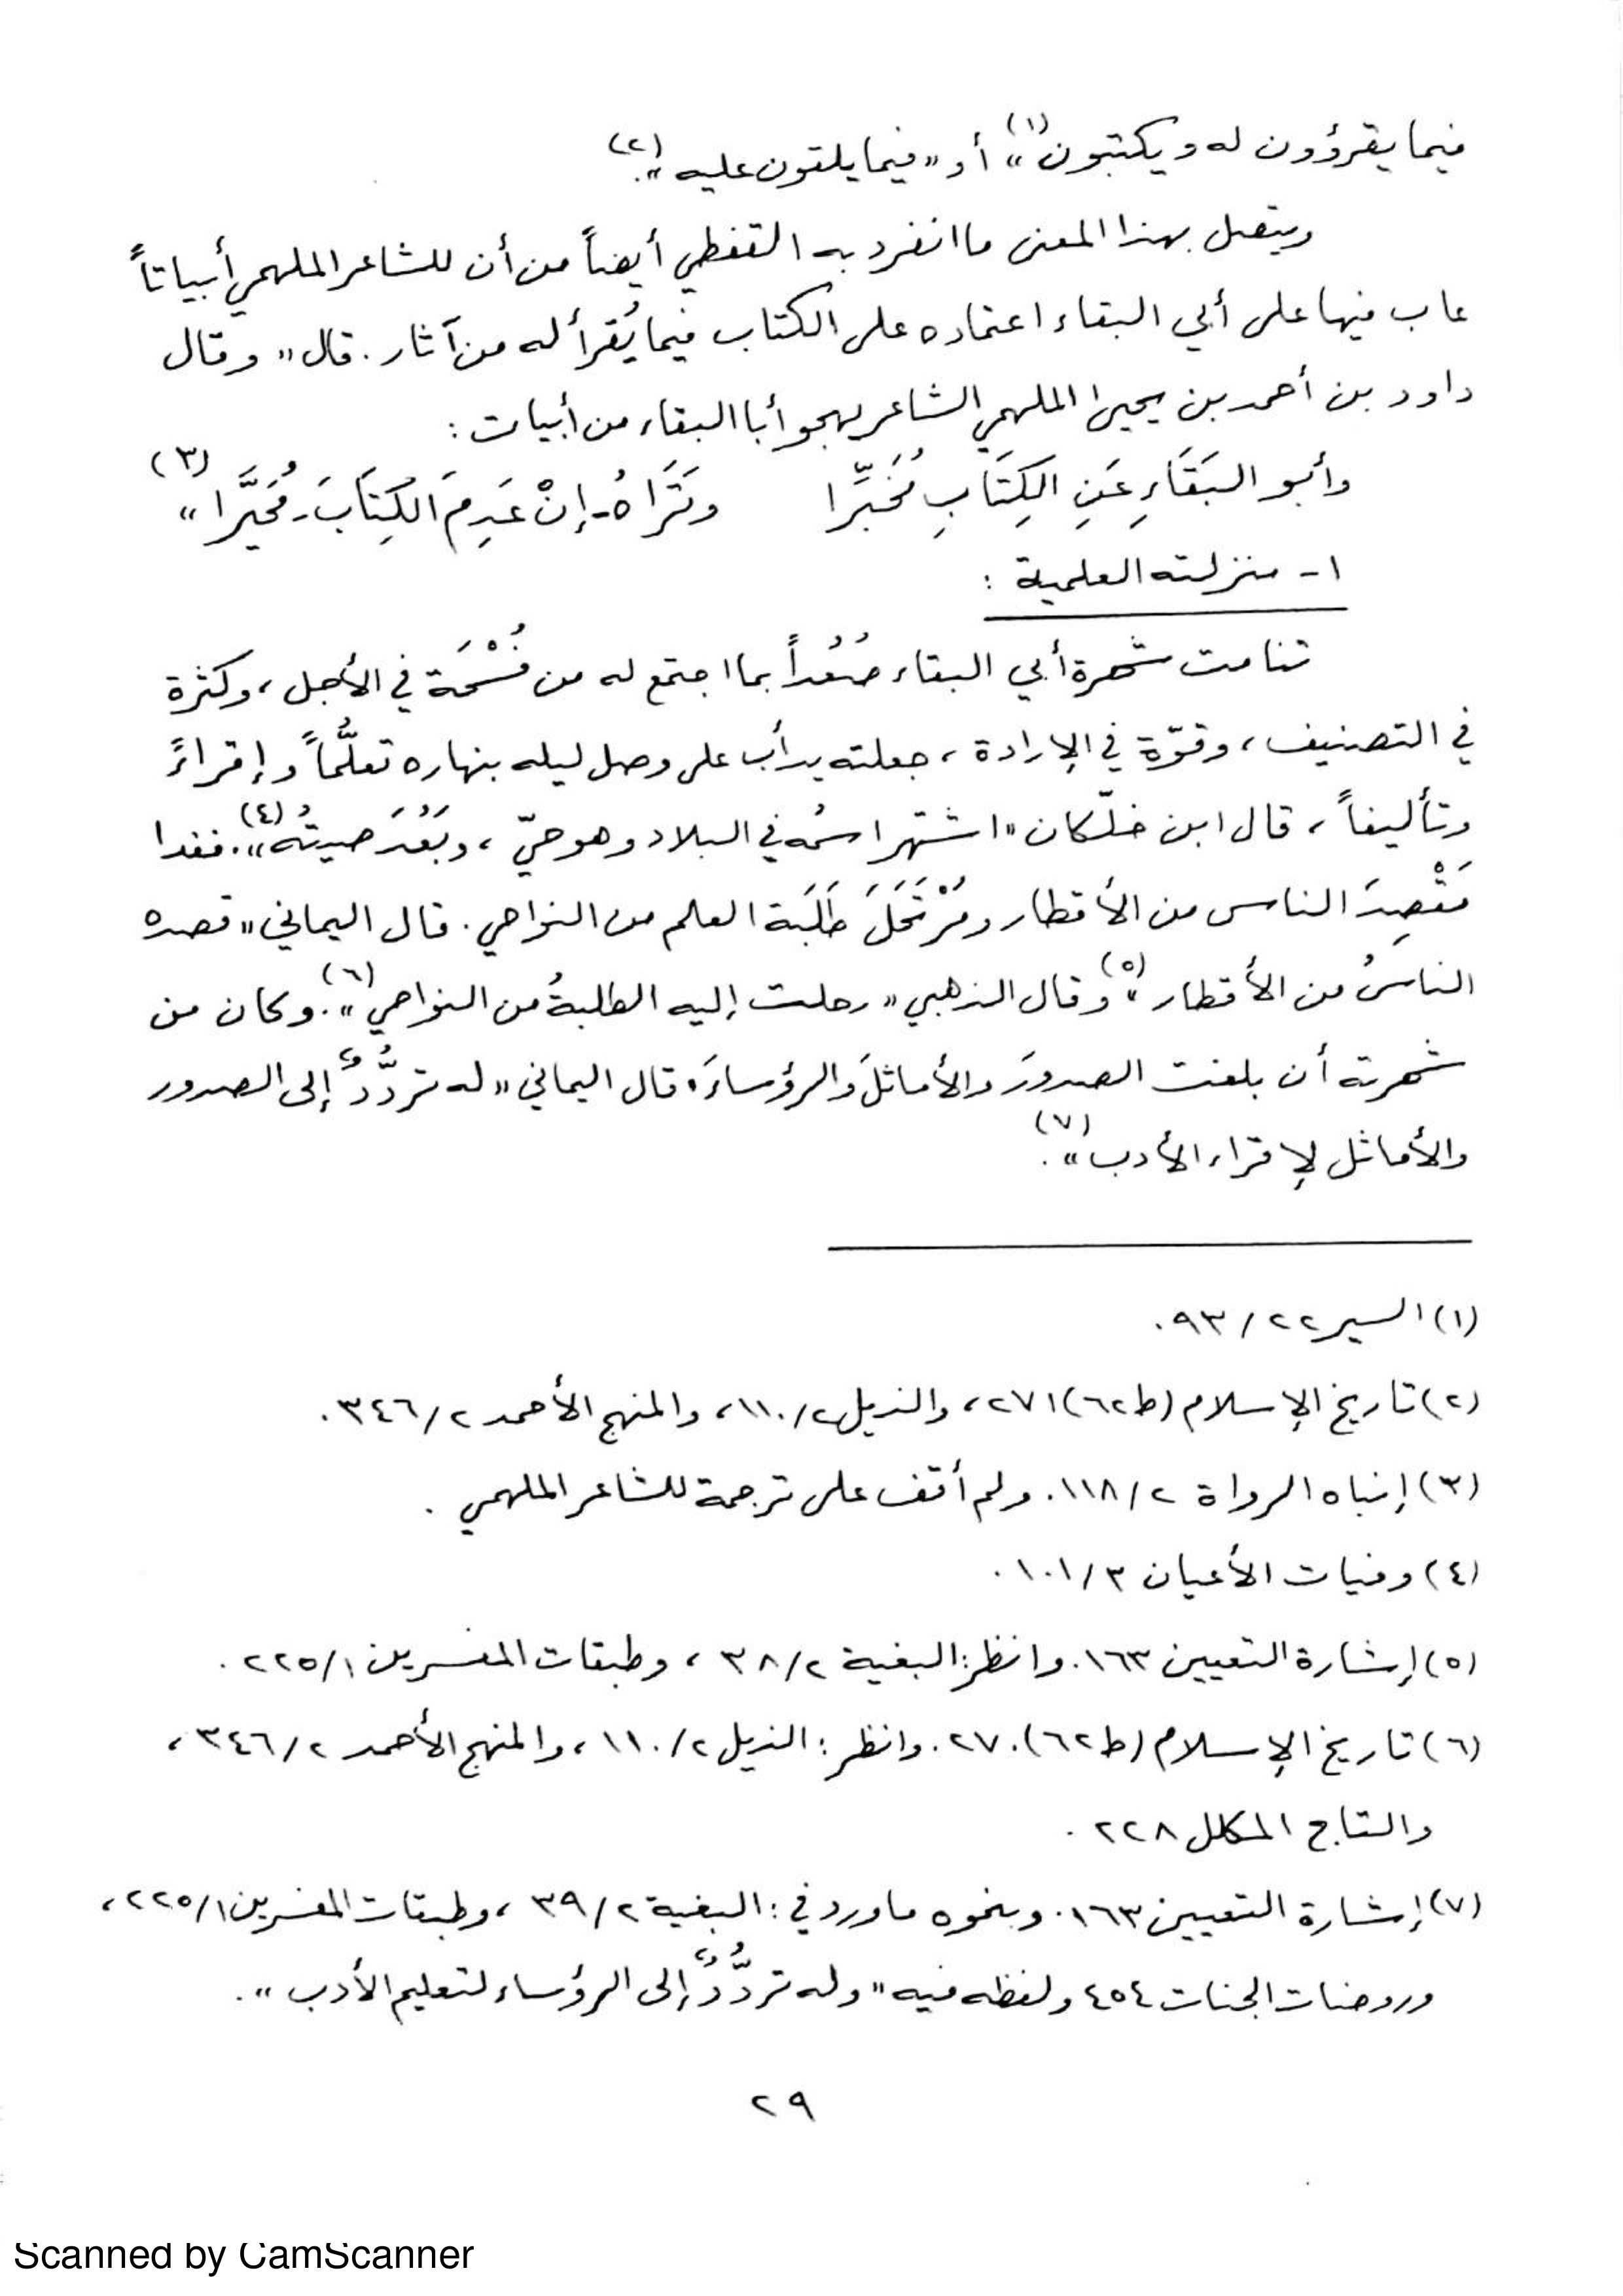 فيما يقرؤون له ويكتبون»(١) أو «فيما يلقون عليه»(٢).
ويتصل بهذا المعنى ما انفرد به القفطي أيضاً من أن للشاعر الملهمي أبياتاً
عاب فيها على أبي البقاء اعتماده على الكتاب فيما يُقرأ له من آثار. قال «وقال
داود بن أحمد بن يحيى الملهمي الشاعر يهجو أبا البقاء من أبيات:
وأبو البَقَاءِ عَنِ الكِتَابِ مُخَبِّرا وتَرَاهُ - إنْ عَدِمَ الكِتَابَ - مُحَيَّرا»(٣)
١- منزلته العلمية:
تنامت شهرة أبي البقاء صُعُداً بما اجتمع له من فُسْحَة في الأجل، وكثرة
في التصنيف، وقوّة في الإرادة، جعلته يدأب على وصل ليله بنهاره تعلُّماً وإقراءً
وتأليفاً، قال ابن خلّكان «اشتهر اسمُه في البلاد وهو حيّ، وبَعُدَ صيتُه»(٤). فغدا
مَقْصِدَ الناس من الأقطار ومُرْتَحَلَ طَلَبَة العلم من النواحي. قال اليماني «قصده
الناسُ من الأقطار»(٥) وقال الذهبي «رحلت إليه الطلبةُ من النواحي»(٦). وكان من
شهرته أن بلغت الصدورَ والأماثلَ والرؤساءَ، قال اليماني «له تردُّدٌ إلى الصدور
والأماثل لإقراء الأدب»(٧).
(١) السير ٢٢/ ٩٣.
(٢) تاريخ الإسلام (ط ٦٢) ٢٧١، والذيل ٢/ ١١٠، والمنهج الأحمد ٢/ ٣٤٦.
(٣) إنباه الرواة ٢/ ١١٨. ولم أقف على ترجمة للشاعر الملهمي.
(٤) وفيات الأعيان ٣/ ١٠١.
(٥) إشارة التعيين ١٦٣. وانظر: البغية ٢/ ٣٨، وطبقات المفسرين ١/ ٢٢٥.
(٦) تاريخ الإسلام (ط ٦٢) ٢٧٠. وانظر: الذيل ٢/ ١١٠، والمنهج الأحمد ٢/ ٣٤٦،
والتاج المكلل ٢٢٨.
(٧) إشارة التعيين ١٦٣. وبنحوه ما ورد في: البغية ٢/ ٣٩، وطبقات المفسرين ١/ ٢٢٥،
وروضات الجنات ٤٥٤ ولفظه فيه «وله تردُّدٌ إلى الرؤساء لتعليم الأدب».
٢٩
Scanned by CamScanner